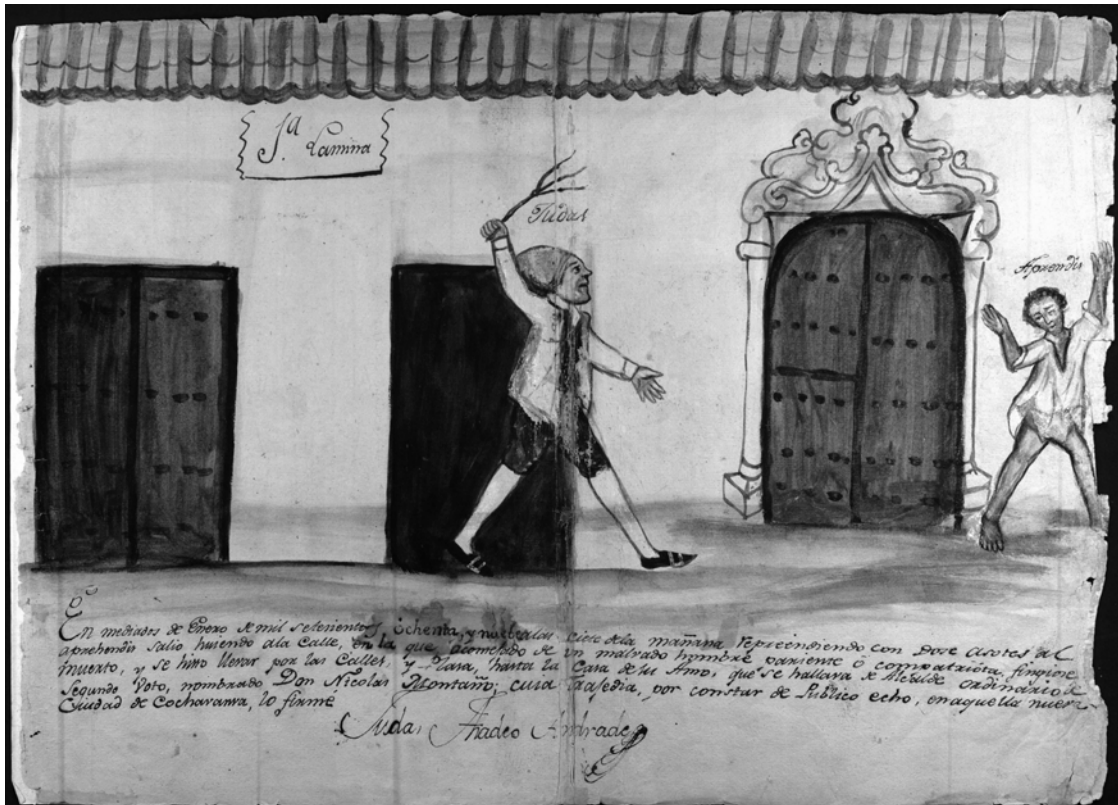 1.ª Lamina
Judas
Aprendis
En mediados de Enero de mil setecientos, y ochenta, y nuebe alas siete dela mañana repreendiendo con dose asotes al
aprehendis salio huiendo ala Calle, en la que, acometido de un malvado hombre pariente ò compatriota, fingiose
muerto, y se hizo llevar por las Calles, y Plasa, hasta la Casa de su Amo, que se hallava de Alcalde ordinario de
Segundo Voto, nombrado Don Nicolas Montaño; cuia trajedia, por constar de Publico echo, en aquella nuera
Ciudad de Cochavamva, lo firmé
Judas Thadeo Andrade